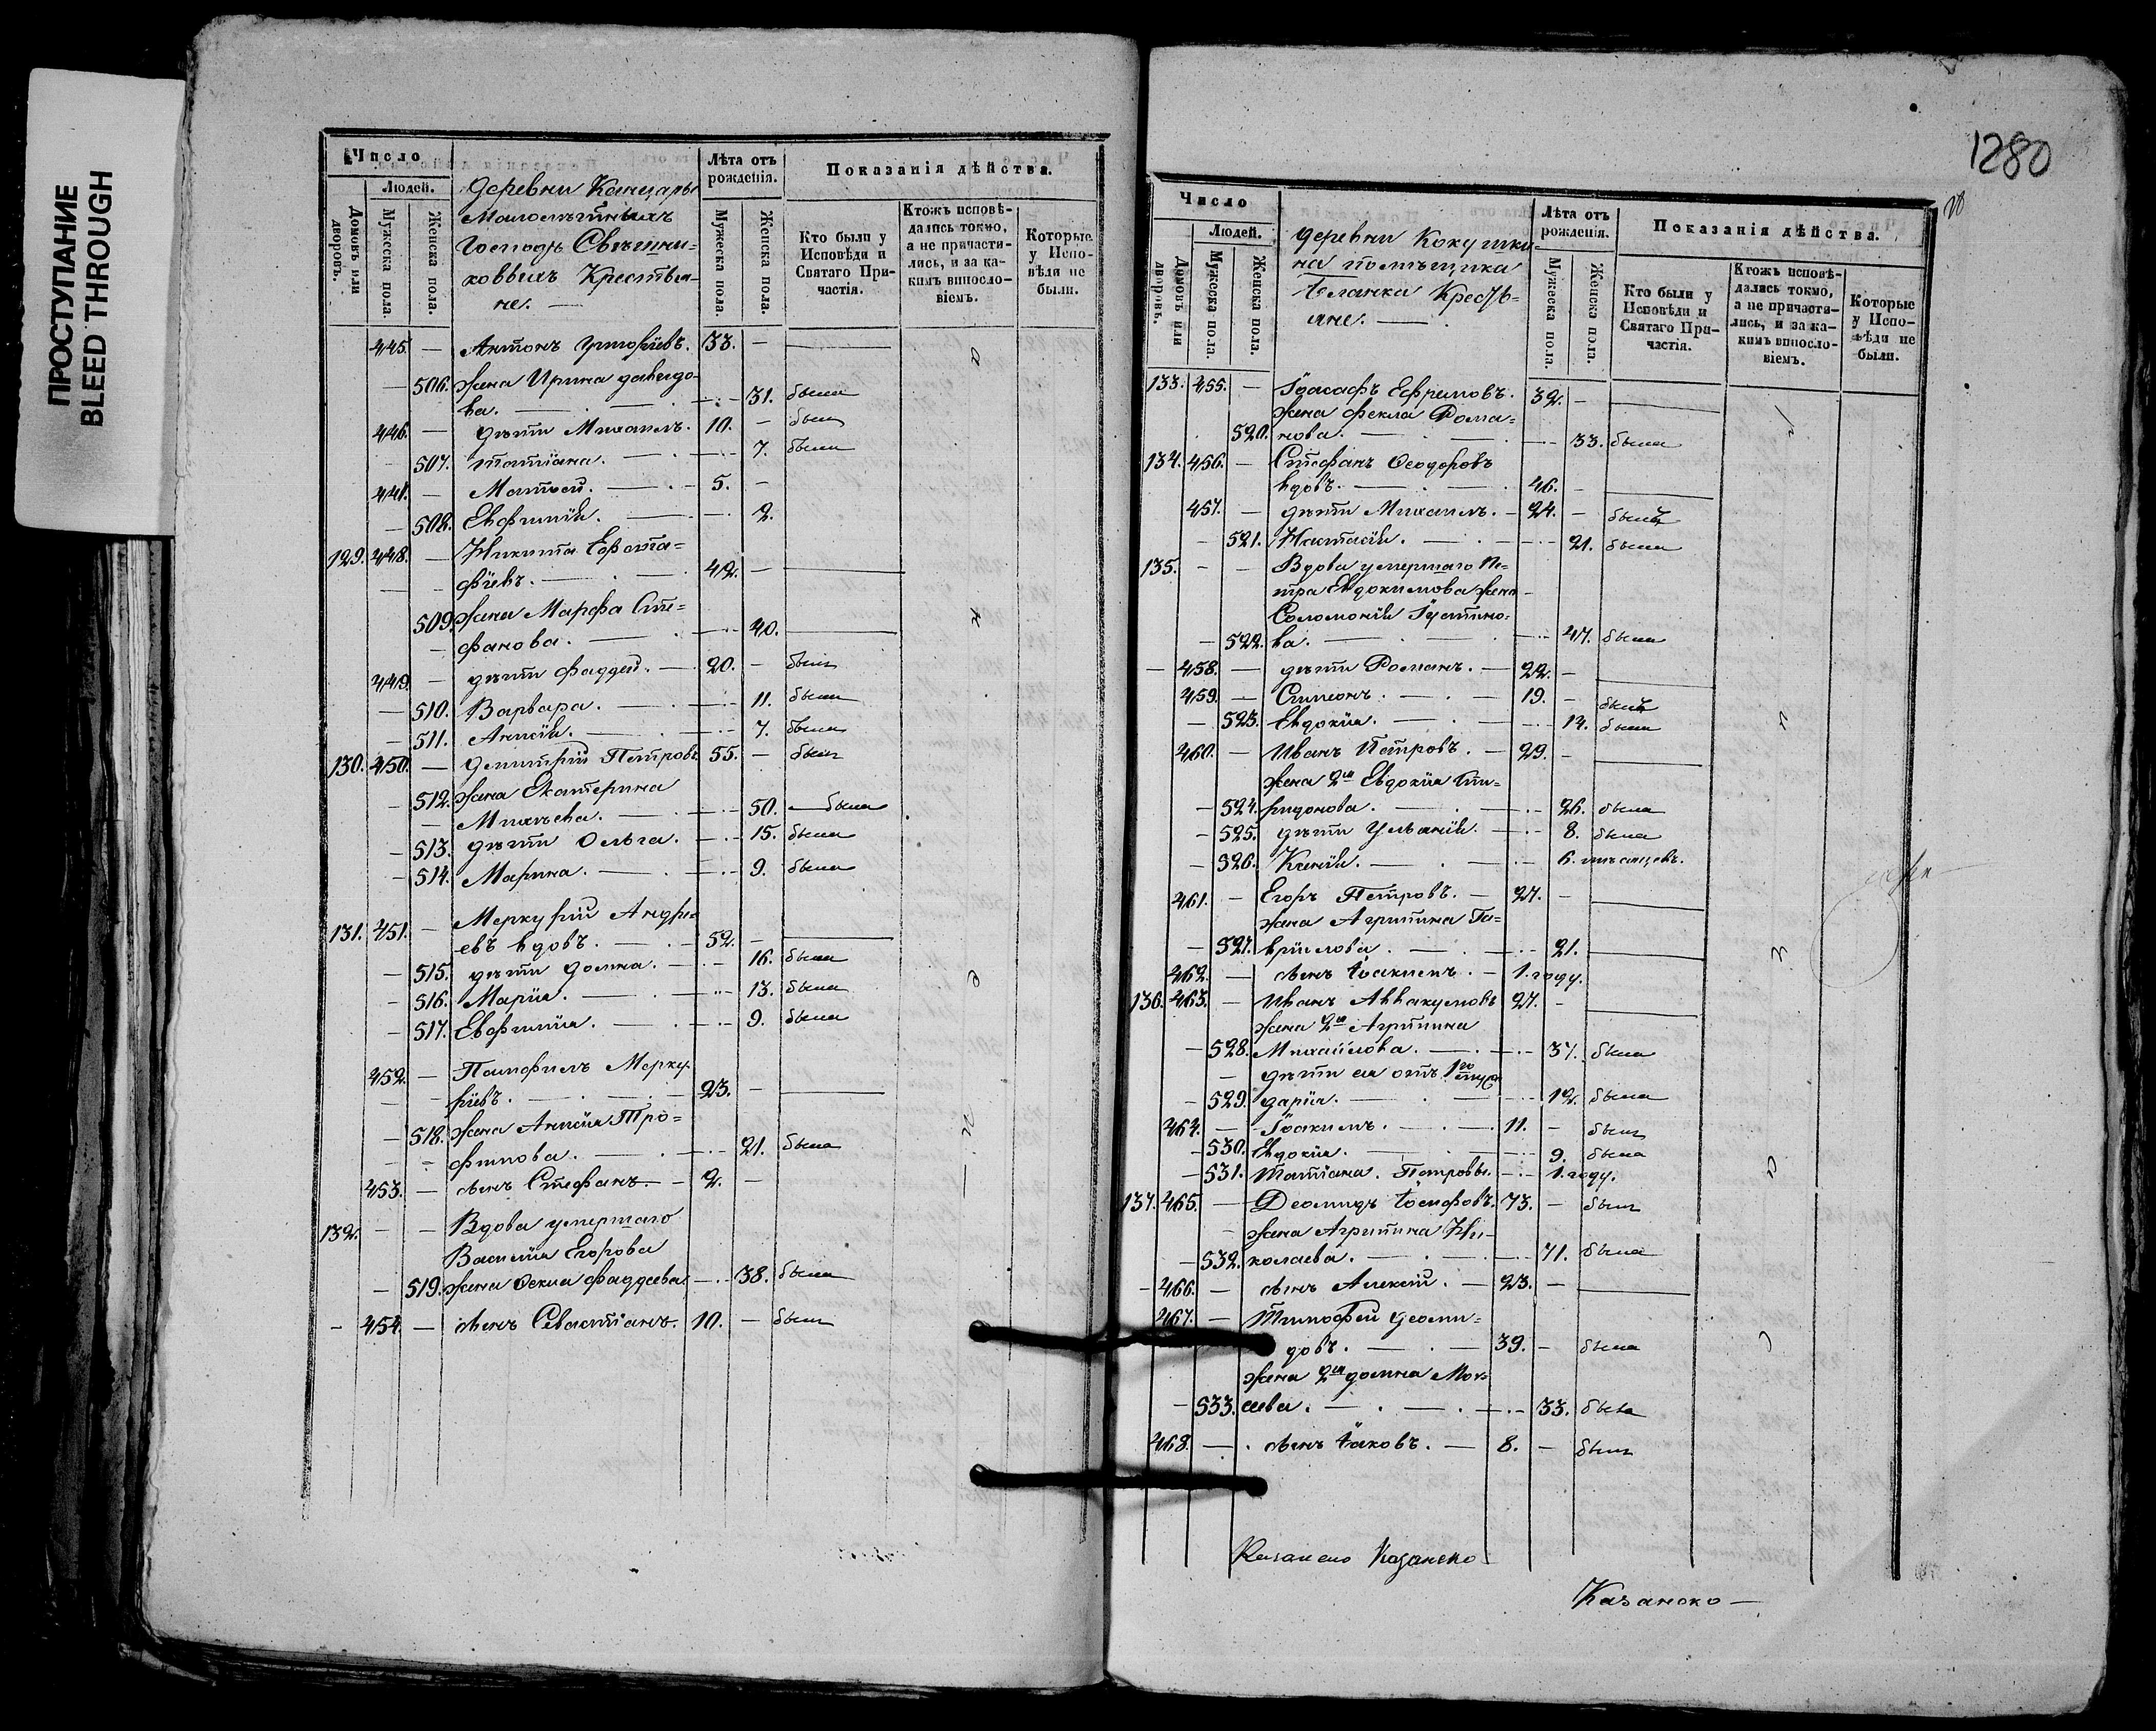 ПРОСТУПАНИЕ
BLEED THROUGH
Число
Людей.
Домовъ или дворовъ.
Мужеска пола.
Женска пола.
деревни
Малолѣтныхъ
Господъ Свѣшни-
ковыхъ Крестья-
не. —
Лѣта отъ рожденія.
Мужеска пола.
Женска пола.
Показанія дѣйства.
Кто были у Исповѣди и Святаго Причастія.
Ктожъ исповѣдались токмо, а не причастились, и за какимъ винословіемъ.
Которые у Исповѣди не были.
445. — Антонъ 33. —
— 506. жена Ирина давидо-
ва. — 31. была
446. — дѣти Михаилъ. 10. — былъ
507. татіана. — 7. была
447. — Матвей. — 5. —
— 508. Евфимія. — 2.
129. 448. — Никита Еѳста-
фіевъ. — 42. —
509. жена Марфа Сте-
фанова. — 40.
449. — дѣти фаддей. — 20. — былъ
— 510. Варвара. — 11. была
— 511. Анисія. — 7. была
130. 450. — Димитрій Петровъ 55. — былъ
— 512. жена Екатерина
Михѣева. — 50. — была
— 513. дѣти Ольга. — 15. была
— 514. Марина. — 9. была
131. 451. — Меркурій Андре-
евъ вдовъ. — 52. —
— 515. дѣти домна. — 16. была
— 516. Марія. — 13. была
— 517. Евфимія. — 9. была
452. — Памфилъ Мерку-
ріевъ. — 23. —
— 518. жена Анисія Тро-
фимова. — 21. была
453. — сынъ Стефанъ. — 2. —
132. — — Вдова умершаго
Василія Егорова
— 519. жена Ѳекла фаддеева. — 38. была
— 454. — сынъ Севастіанъ. 10. — былъ
1280
Число
Людей.
Домовъ или дворовъ.
Мужеска пола.
Женска пола.
деревни Кокушки-
на помѣщика
Крестъ-
яне. —
Лѣта отъ рожденія.
Мужеска пола.
Женска пола.
Показанія дѣйства.
Кто были у Исповѣди и Святаго Причастія.
Ктожъ исповѣдались токмо, а не причастились, и за какимъ винословіемъ.
Которые у Исповѣди не были.
133. 455. — Іоасафъ Ефремовъ. 32. —
жена Фекла Рома-
520. нова. — 33. была
134. 456. — Стефанъ Ѳеодоровъ
вдовъ. — 46. —
457. — дѣти Михаилъ. — 24. — былъ
— 521. Настасія. — 21. была
135. — — Вдова умершаго Пе-
тра Евдокимова жена
Соломонія Іустино-
— 522. ва. — 47. была
— 458. — дѣти Романъ. — 22. —
459. — Симеонъ. — 19. — былъ
— 523. Евдокія. — 14. была
460. — Иванъ Петровъ. — 29. —
жена 2я Евдокія Спи-
— 524. ридонова. — 26. была
— 525. дѣти Ульянія. — 8. была
— 526. Ксенія. — 6. мѣсяцевъ.
461. — Егоръ Петровъ. — 27. —
жена Агрипина Га-
— 527. вріилова. — 21.
462. — сынъ Іоакимъ. — 1. году.
136. 463. — Иванъ Аввакумовъ 27. —
жена 2я Агрипина
— 528. Михайлова. — 37. была
— дѣти ея отъ 1го мужа
— 529. дарія. — 12. была
464. — Іоакимъ. — 11. — былъ
— 530. Евдокія. — 9. была
— 531. Татіана. Петровы. — 1. году.
137. 465. — Діомидъ Іосифовъ. 73. — былъ
жена Агрипина Ни-
— 532. колаева. — 71. была
— 466. — сынъ Алексій. — 23. —
467. — Тимофей Діоми-
довъ. — 39. — была
жена 2я домна Мок-
— 533. еева. — 33. была
468. — сынъ Іаковъ. — 8. — былъ
Казанско Казанско
Казанско —